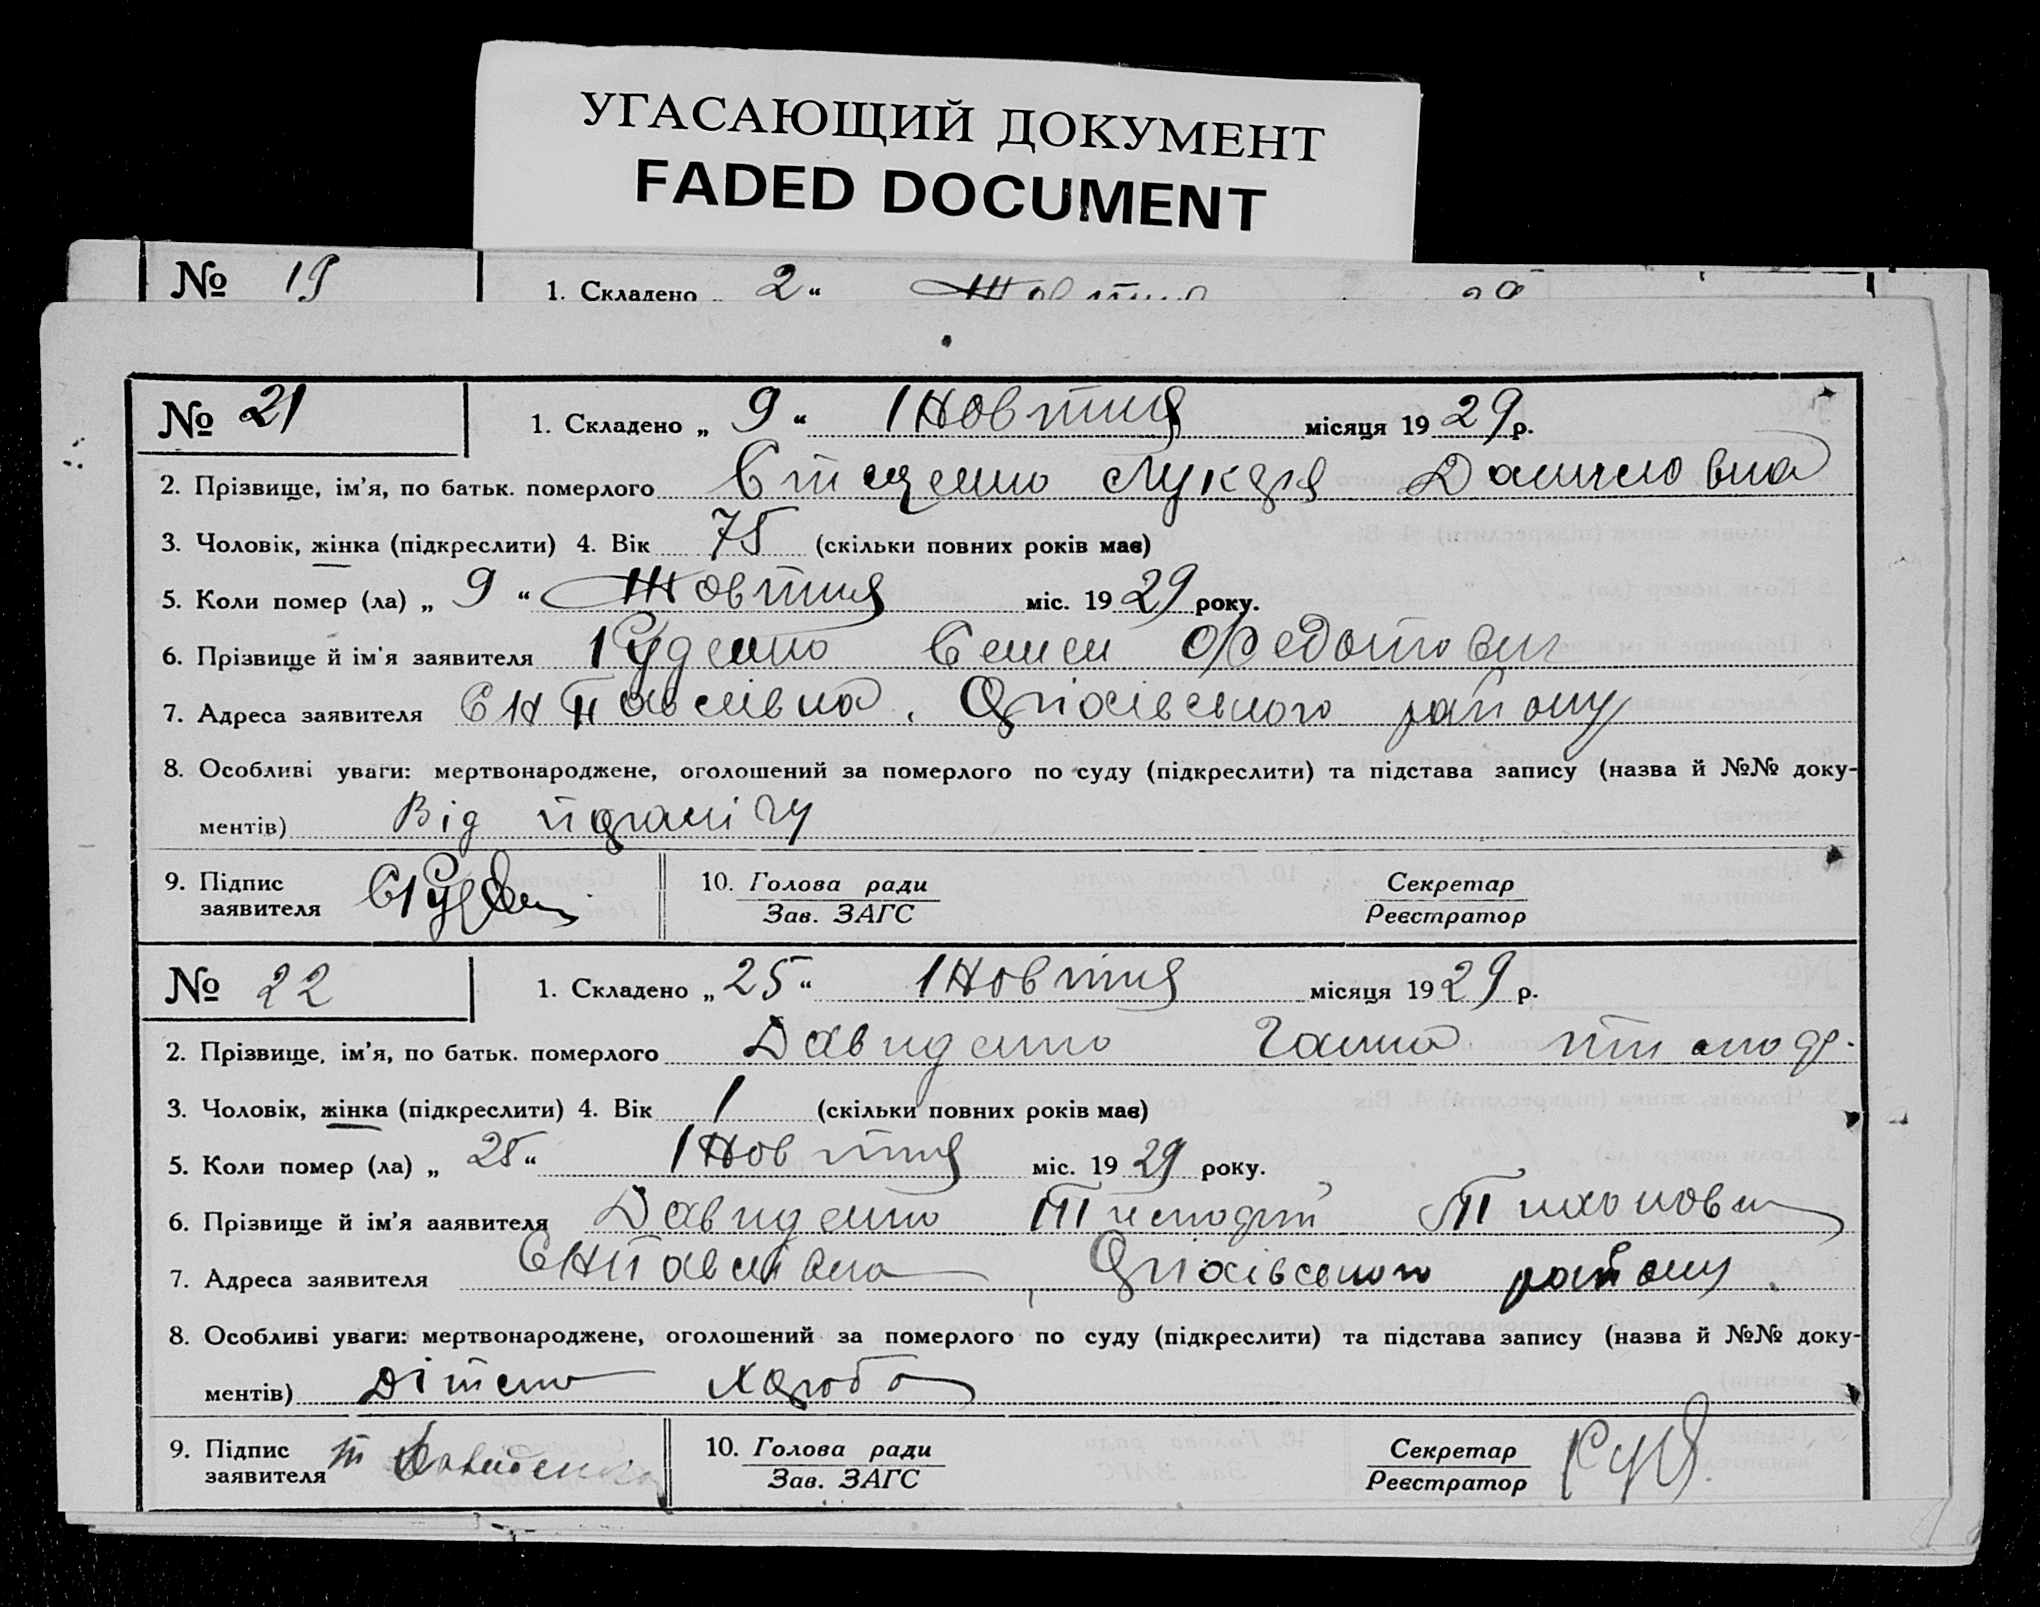 УГАСАЮЩИЙ ДОКУМЕНТ
FADED DOCUMENT
№ 19 1. Складено „ 2 “ Жовтня 29
№ 21 1. Складено „ 9 “ Жовтня місяця 1929 р.
2. Прізвище, ім'я, по батьк. померлого Стиценко Лукдя Даниловна
3. Чоловік, жінка (підкреслити) 4. Вік 75 (скільки повних років має)
5. Коли помер (ла) „ 9 “ Жовтня міс. 1929 року.
6. Прізвище й ім'я заявителя Руденко Семен Федотович
7. Адреса заявителя Павлівка, Оріхівського району
8. Особливі уваги: мертвонароджене, оголошений за померлого по суду (підкреслити) та підстава запису (назва й №№ доку-
ментів) Від
9. Підпис заявителя 10. Голова ради Зав. ЗАГС Секретар Реєстратор
№ 22 1. Складено „ 25 “ Жовтня місяця 1929 р.
2. Прізвище, ім'я, по батьк. померлого Давиденко Ганна
3. Чоловік, жінка (підкреслити) 4. Вік 1 (скільки повних років має)
5. Коли помер (ла) „ 25 “ Жовтня міс. 1929 року.
6. Прізвище й ім'я ааявителя Давиденко Тимофій Тихонович
7. Адреса заявителя Павлівка, Оріхівського району.
8. Особливі уваги: мертвонароджене, оголошений за померлого по суду (підкреслити) та підстава запису (назва й №№ доку-
ментів) Дітська хороба
9. Підпис заявителя Т Давиденко 10. Голова ради Зав. ЗАГС Секретар Реєстратор Руд